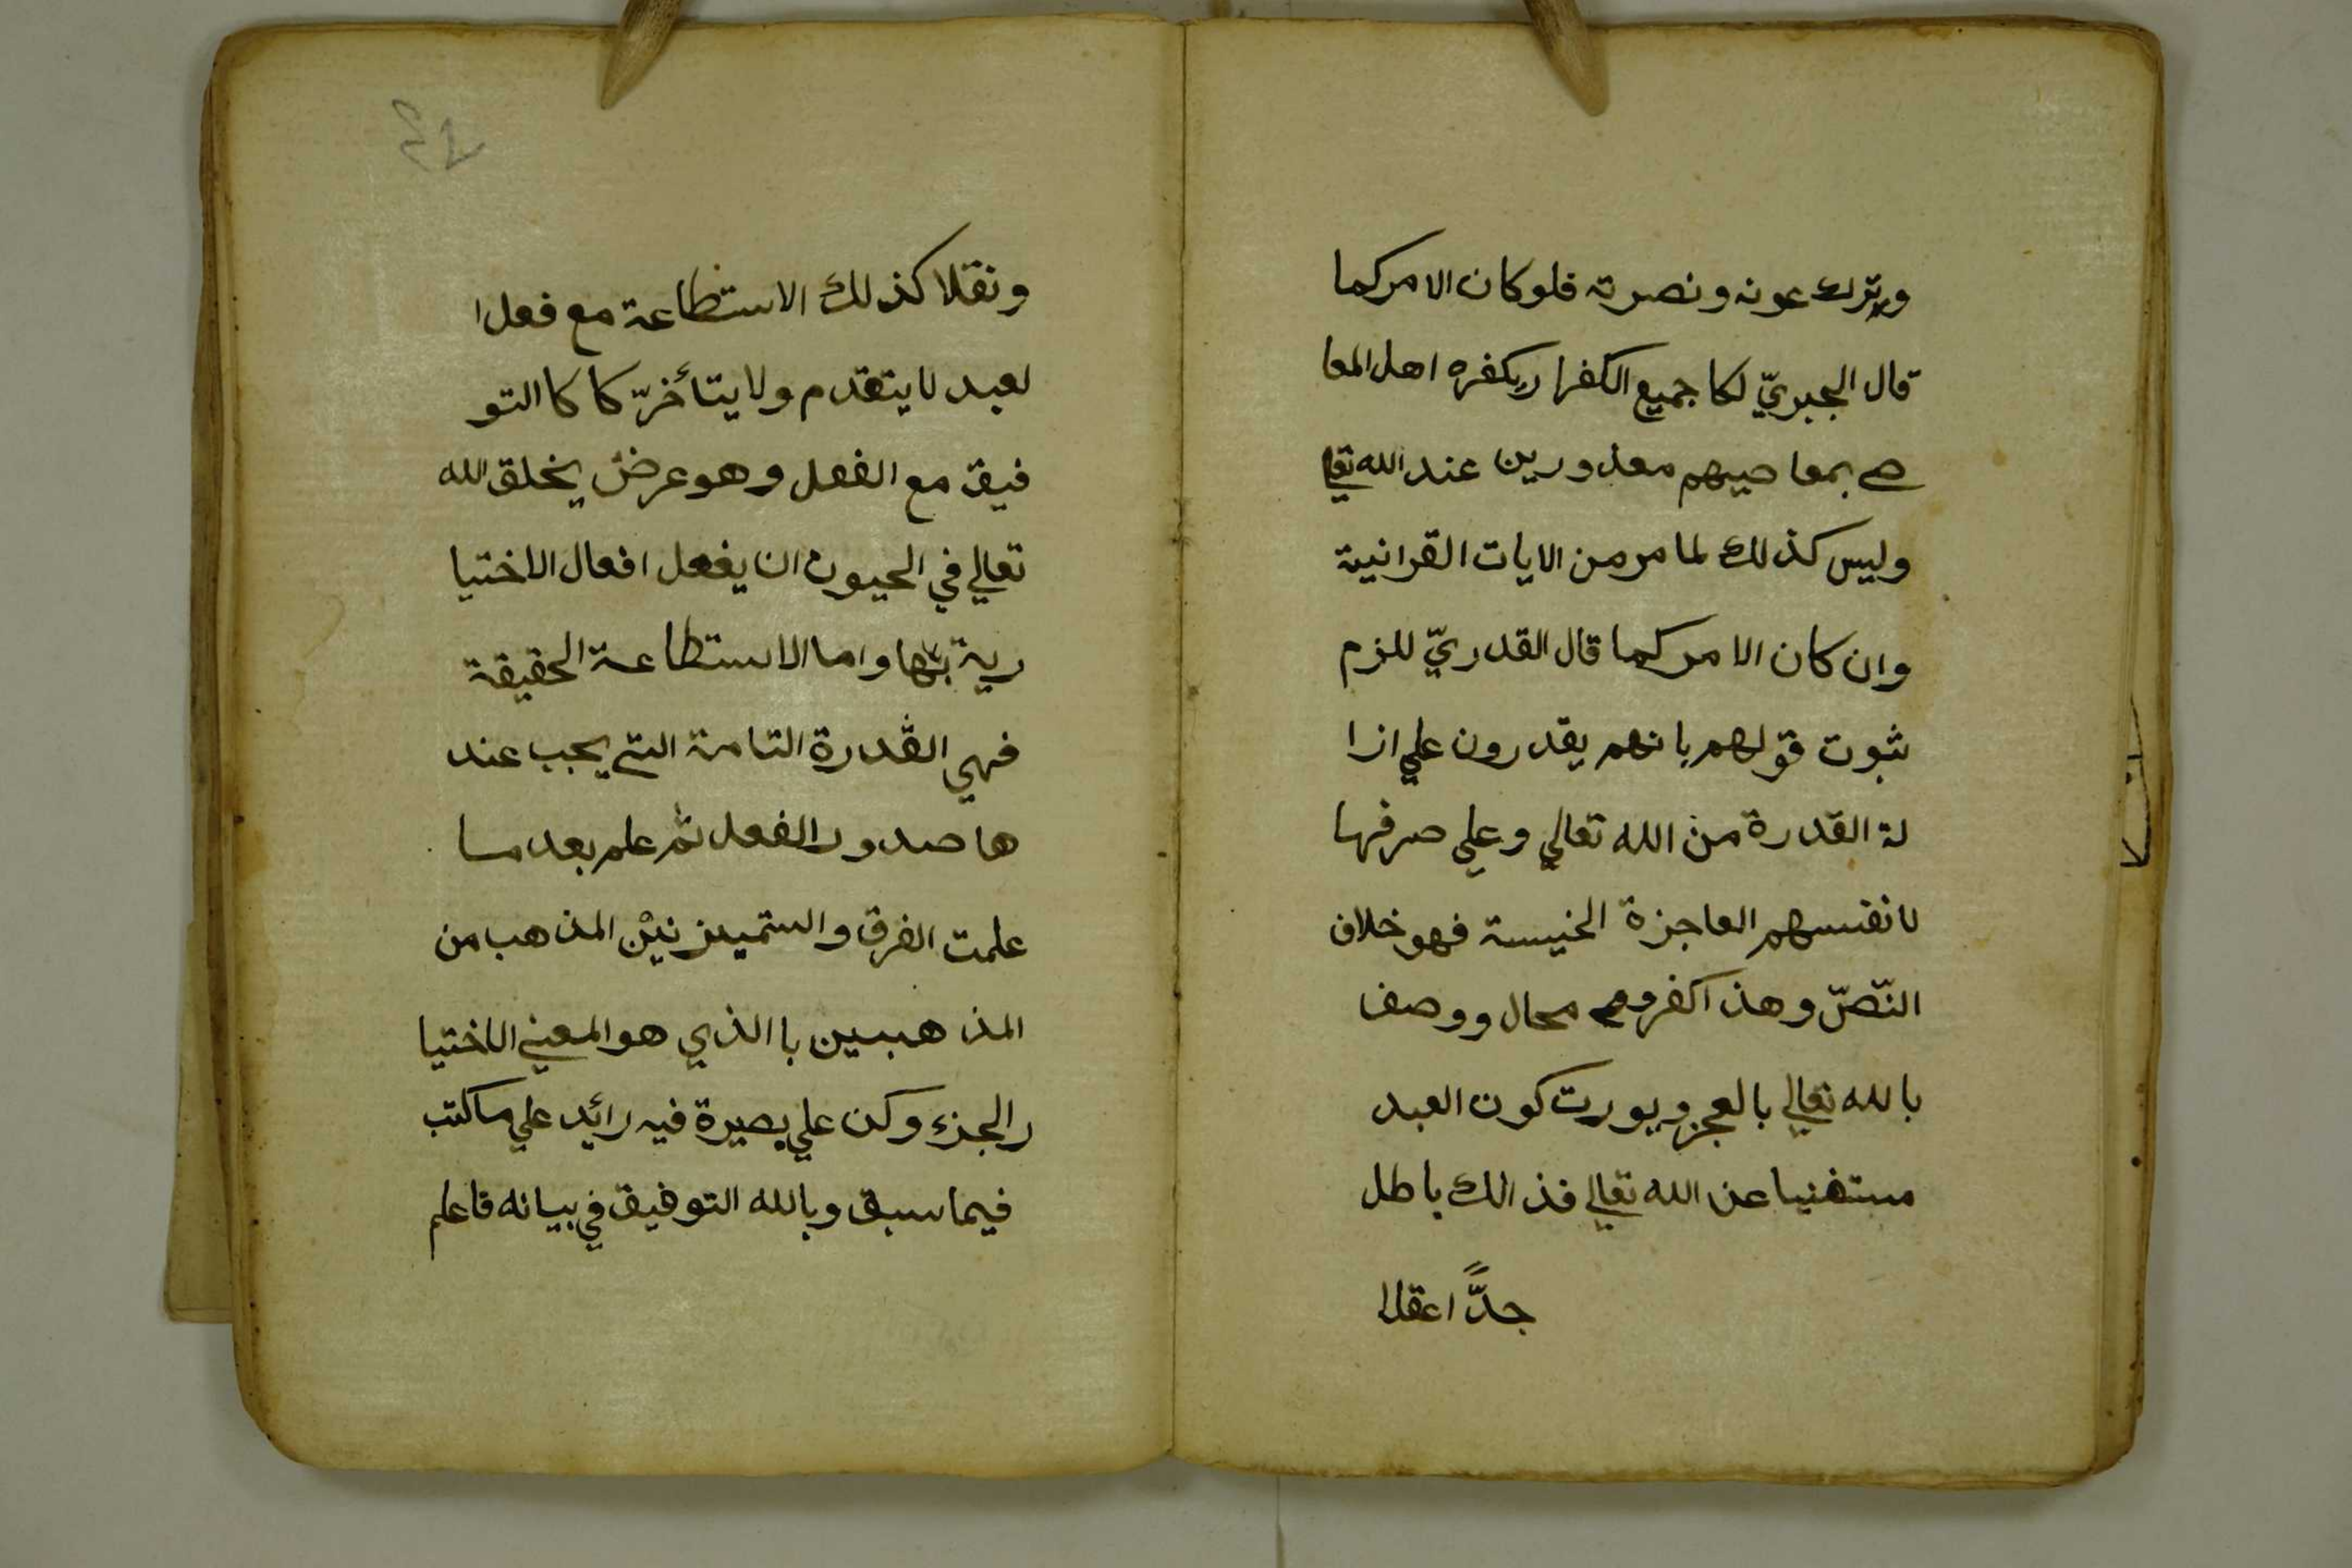 ويترك عونه ونصرته فلو كان الامر كما
قال الجبريّ لكا جميع الكفار بكفره اهل المعا
صے بمعاصيهم معذورين عند الله تعالي
وليس كذلك لما مر من الايات القرانية
وان كان الامر كما قال القدريّ للزم
ثبوت قوّلهم بانهم يقدرون علي ازا
لة القدرة من الله تعالي وعلي صرفها
لانفسهم العاجزة الخسيسة فهو خلاف
النّصّ وهذا كفر محال ووصف
بالله تعالي بالعجز ويورث كون العبد
مستغنيا عن الله تعالي فذالك باطل
جدًّا عقلا
ونقلا كذلك الاستطاعة مع فعل ا
لعبد لا يتقدم ولا يتأخرّ كا كا التو
فيق مع الفعل وهو عرض يخلق الله
تعالي في الحيون ان يفعل افعال الاختيا
رية بها واما الاستطاعة الحقيقة
فهي القدرة التامة التي يجب عند
ها صدور الفعل ثم علم بعد ما
علمت الفرق والتميز بين المذهب من
المذهبين با الذي هو المعني الاختيا
ر الجزء وكن علي بصيرة فيه زائد علي ما كتب
فيما سبق وبالله التوفيق في بيانه فاعلم